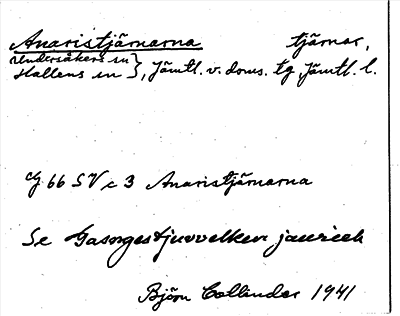 Anaristjärnarna tjärnar,
Undersåkers sn
Hallens sn }, Jämtl. v. doms. tg, Jämtl. l.
66 SV c 3 Anaristjärnarna
Se Gasngestjuvvelken jaurieh
Björn Collinder 1941